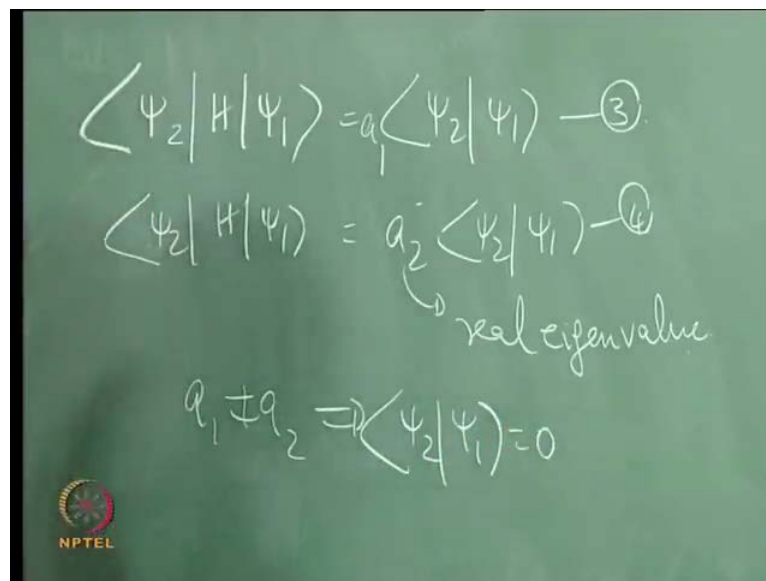 ⟨Ψ₂|H|Ψ₁⟩ = a₁⟨Ψ₂|Ψ₁⟩ — ③.
⟨Ψ₂|H|Ψ₁⟩ = a₂⟨Ψ₂|Ψ₁⟩ — ④
real eigenvalue.
a₁ ≠ a₂ ⇒ ⟨Ψ₂|Ψ₁⟩ = 0
NPTEL